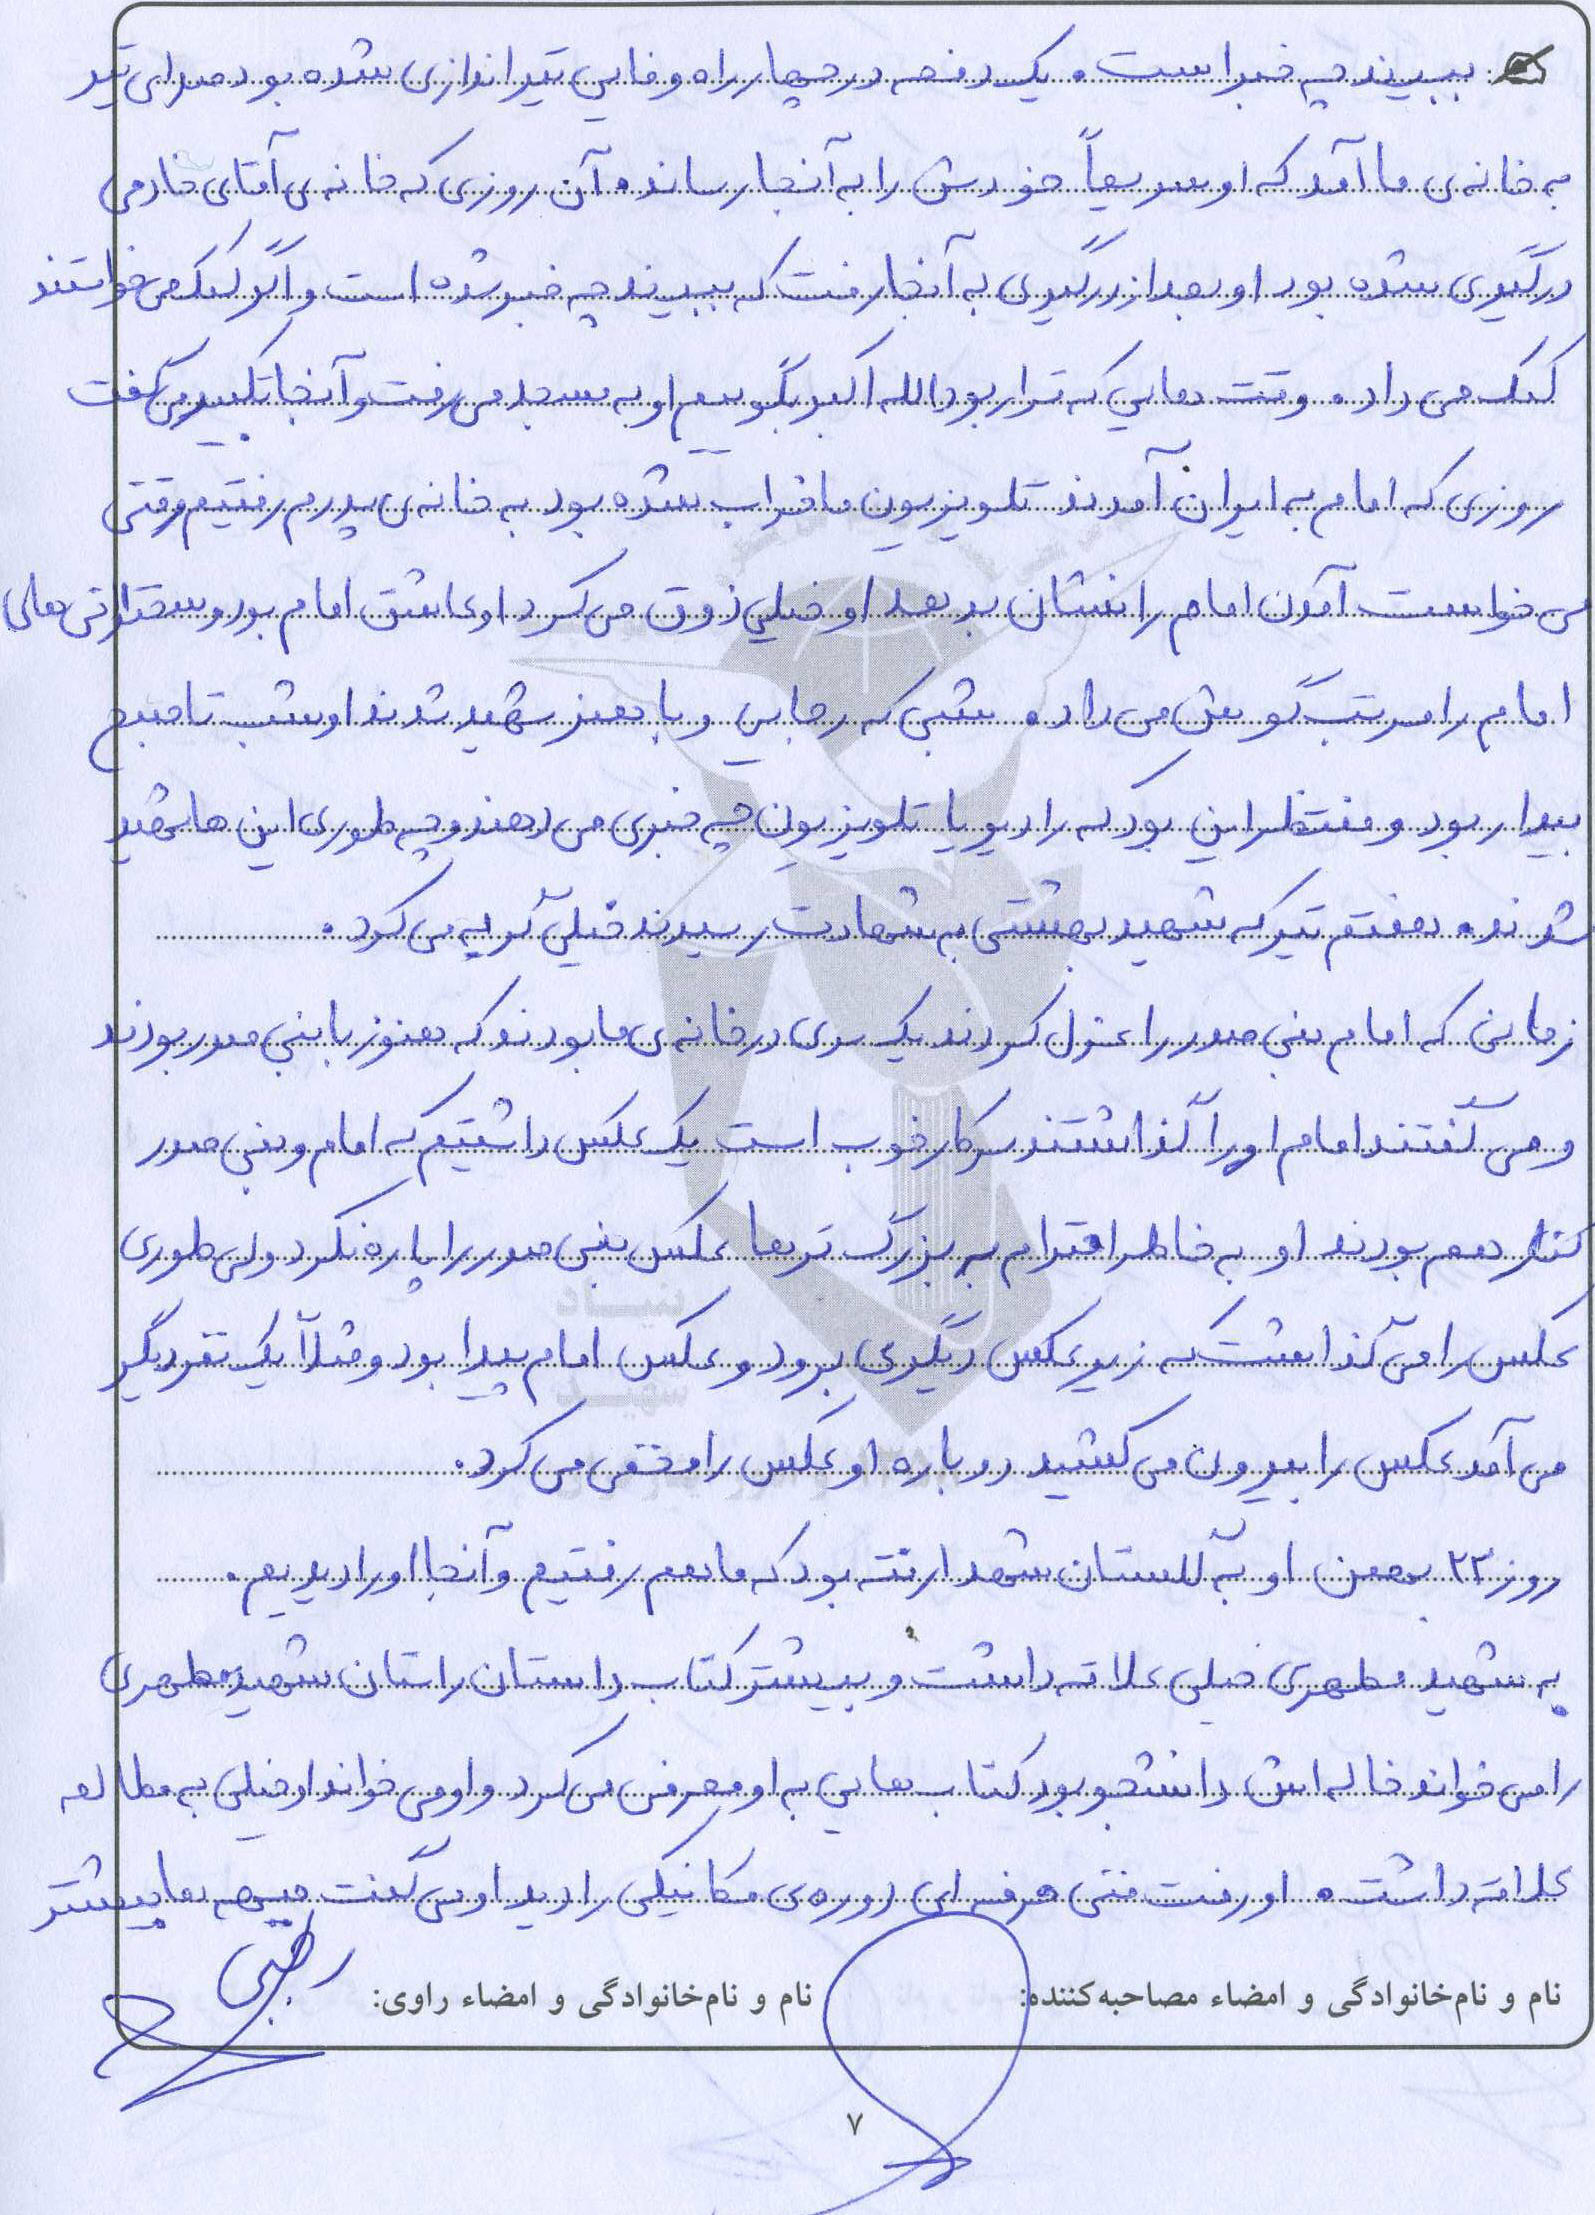 ببیند چه خبر است. یک دفعه در چهار راه وفایی تیراندازی شده بود صدای تیر
به خانه‌ی ما آمد که او سریعاً خودش را به آنجا رساند. آن روزی که خانه‌ی آقای خادمی
درگیری شده بود او بعد از درگیری به آنجا رفت که ببیند چه خبر شده است و اگر کمک می‌خواستند
کمک می‌داد. وقت هایی که قرار بود الله اکبر بگوییم او به مسجد می‌رفت و آنجا تکبیر می‌گفت
روزی که امام به ایران آمدند تلویزیون ما خراب شده بود به خانه‌ی پدرم رفتیم وقتی
می‌خواست آمدن امام را نشان بدهد او خیلی ذوق می‌کرد او عاشق امام بود و سخنرانی های
امام را مرتب گوش می‌داد. شبی که رجایی و باهنر شهید شدند او شب تا صبح
بیدار بود و منتظر این بود که رادیو یا تلویزیون چه خبری می‌دهند و چه طوری این ها شهید
شدند. هفتم تیر که شهید بهشتی به شهادت رسیدند خیلی گریه می‌کرد.
زمانی که امام بنی صدر را عزل کردند یک سری در خانه‌ی ما بودند که هنوز با بنی صدر بودند
و می‌گفتند امام او را گذاشتند سر کار خوب است یک عکس داشتیم که امام و بنی صدر
کنار هم بودند او به خاطر احترام به بزرگ ترها عکس بنی صدر را پاره نکرد ولی طوری
عکس را می‌گذاشت که زیر عکس دیگری برود و عکس امام پیدا بود و مثلاً یک نفر دیگر
می‌آمد عکس را بیرون می‌کشید دوباره او عکس را مخفی می‌کرد.
روز ۲۲ بهمن او به گلستان شهدا رفته بود که ما هم رفتیم و آنجا او را دیدیم.
به شهید مطهری خیلی علاقه داشت و بیشتر کتاب داستان راستان شهید مطهری
را می‌خواند خاله اش دانشجو بود کتاب هایی به او معرفی می‌کرد و او می‌خواند او خیلی به مطالعه
علاقه داشت. او رفت فنی حرفه ای دوره‌ی مکانیکی را دید او می‌گفت جبهه ها بیشتر
نام و نام‌خانوادگی و امضاء مصاحبه‌کننده: نام و نام‌خانوادگی و امضاء راوی:
۷